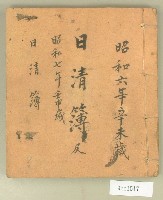 昭和六年辛未歳
日清簿
及
昭和七年壬申歳
日清簿